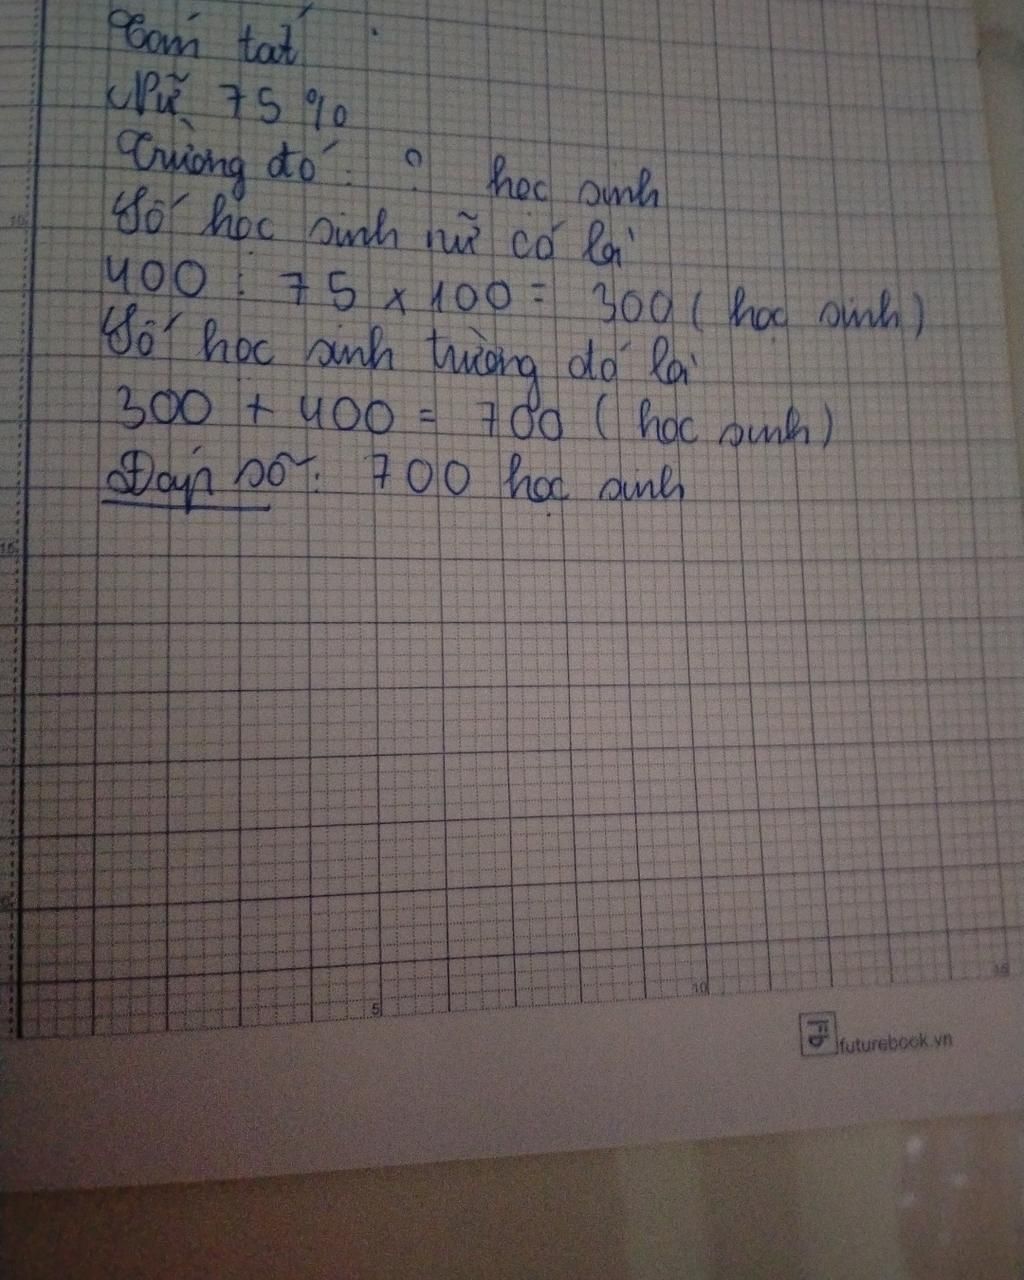 Tóm tắt
Nữ 75%
Trường đó: ? học sinh
Số học sinh nữ có là
400 : 75 x 100 = 300 ( học sinh )
Số học sinh trường đó là
300 + 400 = 700 ( học sinh )
Đáp số: 700 học sinh
10
15
5
10
15
futurebook.vn